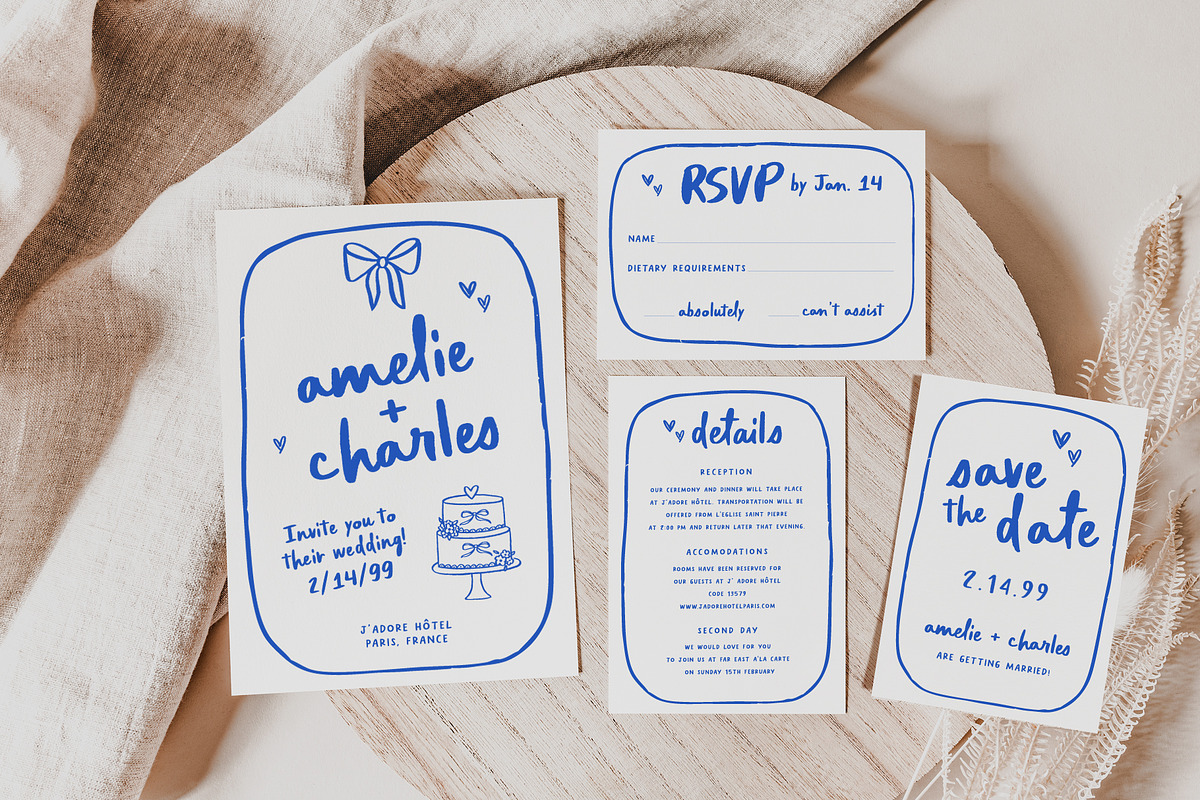 amelie
+
charles
Invite you to
their wedding!
2/14/99
J'ADORE HÔTEL
PARIS, FRANCE
RSVP by Jan. 14
NAME
DIETARY REQUIREMENTS
absolutely can't assist
details
RECEPTION
OUR CEREMONY AND DINNER WILL TAKE PLACE
AT J'ADORE HÔTEL. TRANSPORTATION WILL BE
OFFERED FROM L'EGLISE SAINT PIERRE
AT 7:00 PM AND RETURN LATER THAT EVENING.
ACCOMODATIONS
ROOMS HAVE BEEN RESERVED FOR
OUR GUESTS AT J' ADORE HÔTEL
CODE 13579
WWW.JADOREHOTELPARIS.COM
SECOND DAY
WE WOULD LOVE FOR YOU
TO JOIN US AT FAR EAST A'LA CARTE
ON SUNDAY 15TH FEBRUARY
save
the date
2.14.99
amelie + charles
ARE GETTING MARRIED!